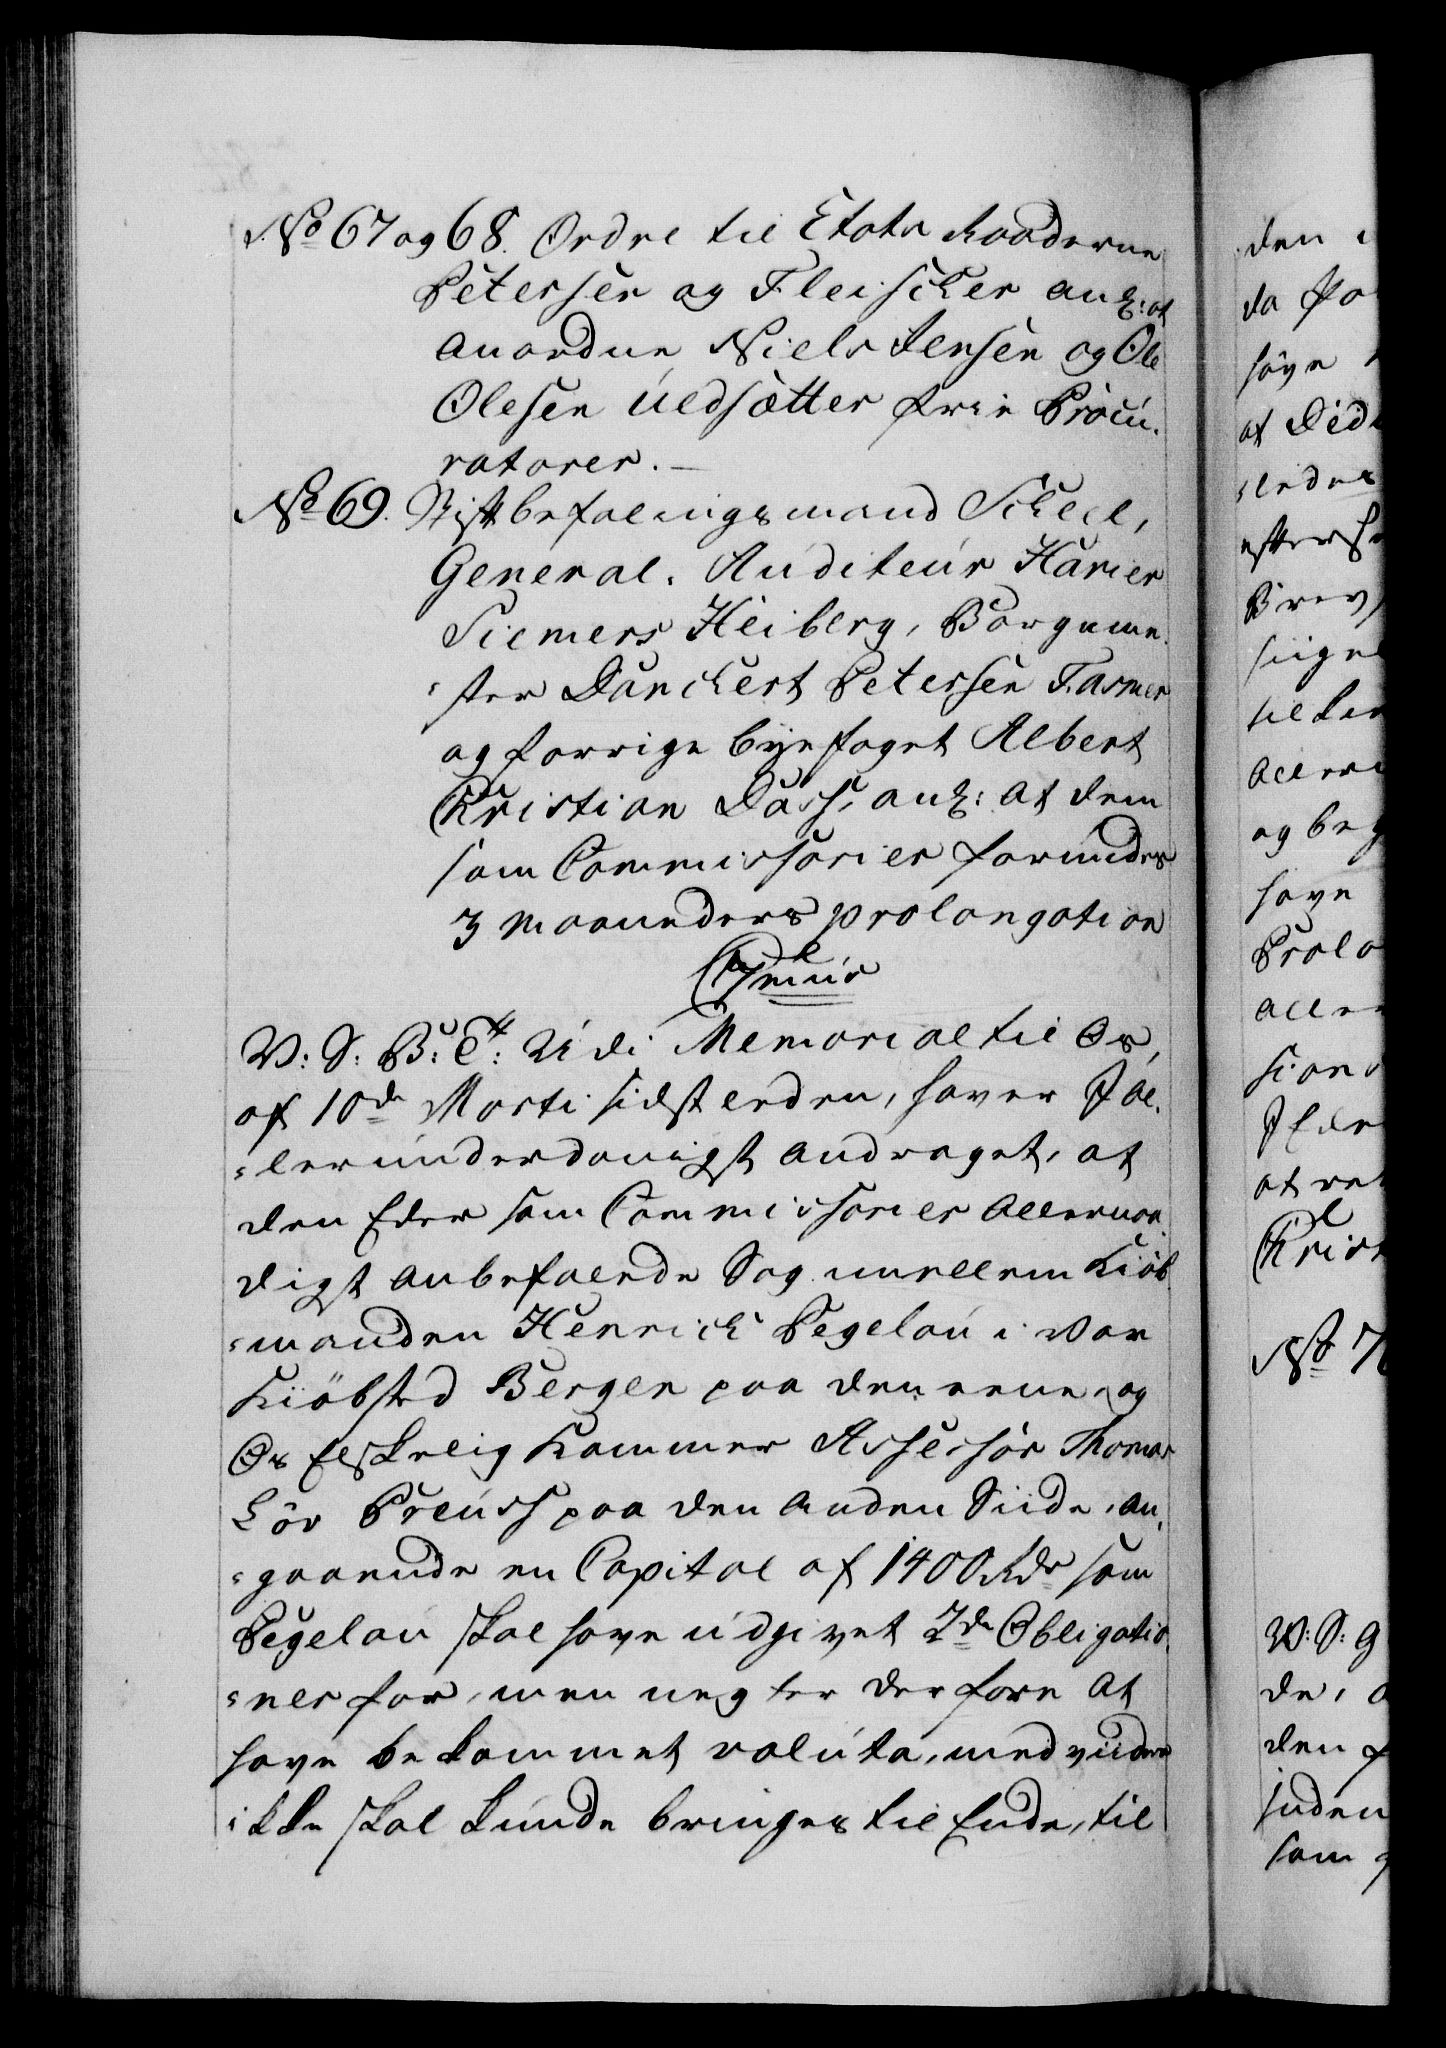 No 67 og 68. Ordre til Etats Raaderne
Petersen og Fleischer ang: at
anordne Niels Jensen og Ole
Olesen Uldsætter frie Procu-
ratorer. —
No 69. Stiftbefalingsmand Scheel,
General-Auditeur Hänier
Siemers Heiberg, Borgeme-
ster Danckert Petersen Fasmer
og forrige byefoget Albert
Christian Dass, ang: at dem
som Commissarier forundes
3 Maaneders prolongation
V: S: B: Udi Memorial til Os,
af 10de Marti sidstleden, haver I al-
lerunderdanigst andraget, at
den Eder som Commissarier allernaa-
digst anbefalede Sag imellem Kiøb-
manden Henrich Pegelau i Vor
Kiøbsted Bergen paa den eene, og
Os Elskelig Kammer Assessor Thomas
Löv Preuss paa den anden Siide, an-
gaaende en Capital af 1400 Rdr som
Pegelau skal have udgivet 2de Obligatio-
ner for, men negter derfore at
have bekommet valuta, med videre
ikke skal kunde bringes til Ende, til
den
da
have
at
Brev
og
have
Prolo
aller
sion
I Eder
at
Chris
No 7
V: S: G
de,
den
inden
som